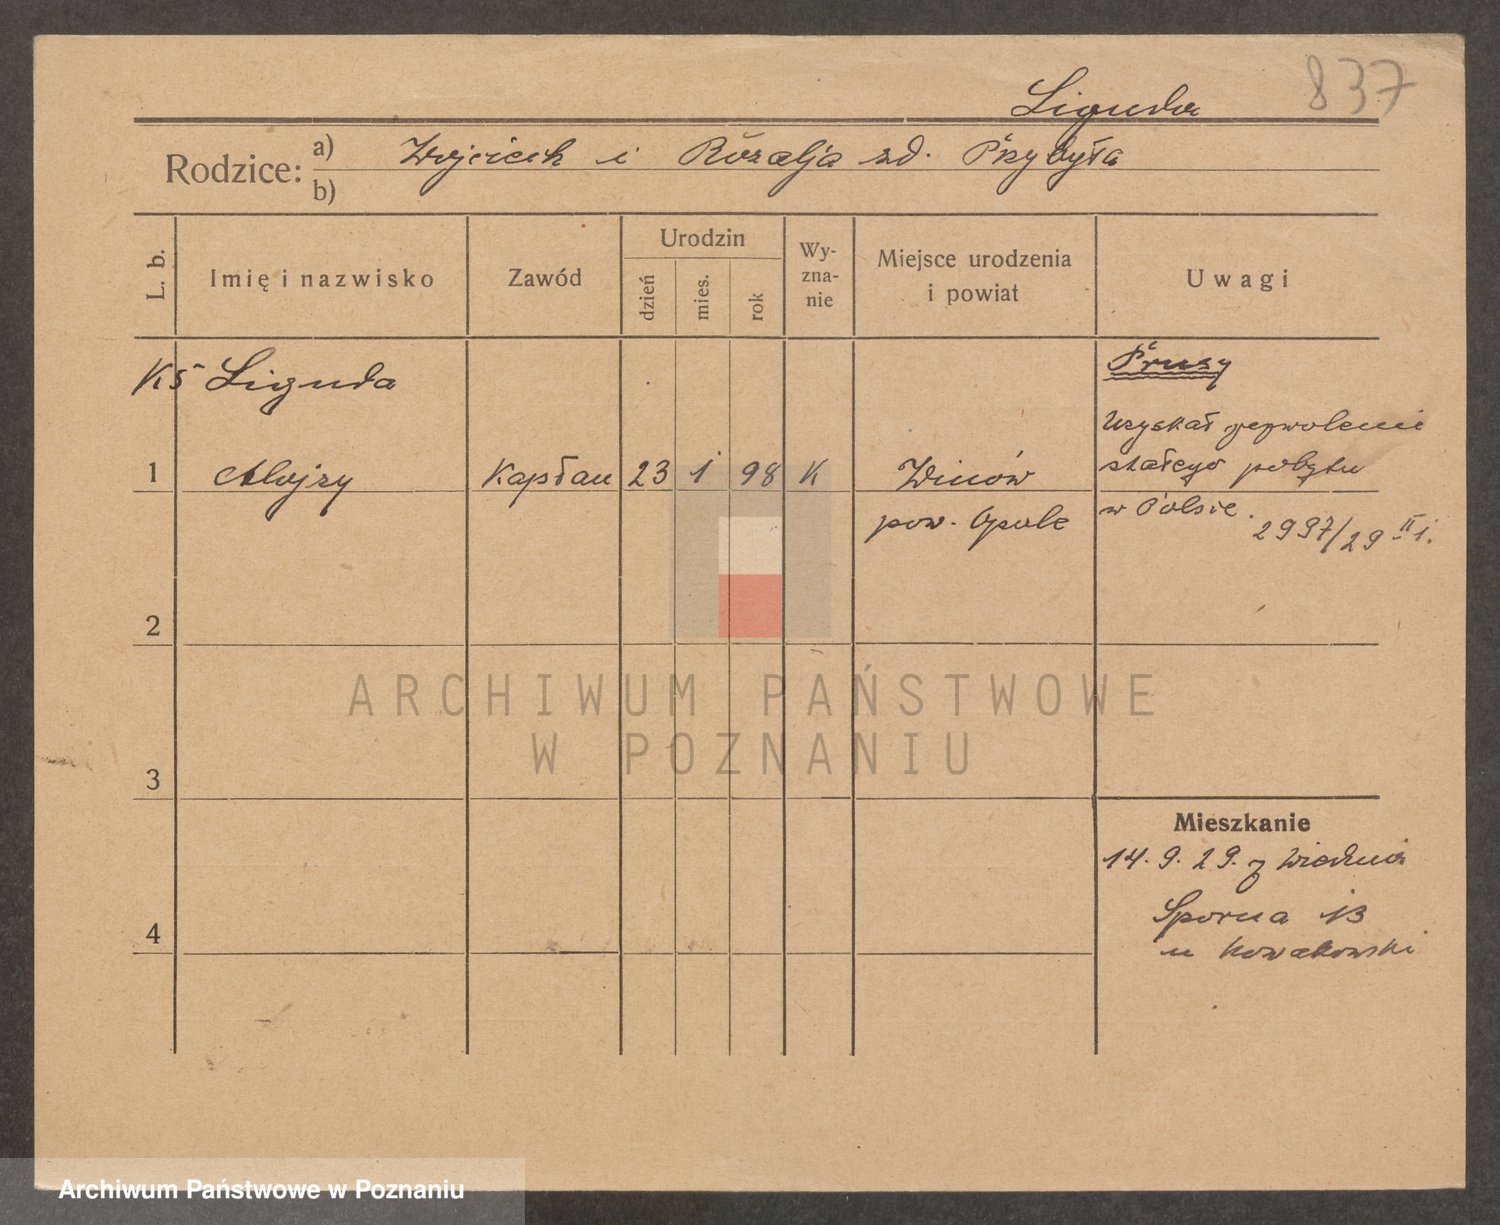 Liguda 837
Rodzice: a) Wojciech i Rozalja zd. Przybyła
b)
L. b. Imię i nazwisko Zawód Urodzin dzień mies. rok Wy-zna-nie Miejsce urodzenia i powiat Uwagi
Ks Liguda Prusy
Uzyskał zezwolenie
1 Alojzy Kapłan 23 1 98 K Winów stałego pobytu
pow. Opole w Polsce.
2997/29 II i.
2
ARCHIWUM PAŃSTWOWE
W POZNANIU
3
Mieszkanie
14. 9. 29. z Wiednia
Sporna 13
4
u Kowalowski
Archiwum Państwowe w Poznaniu